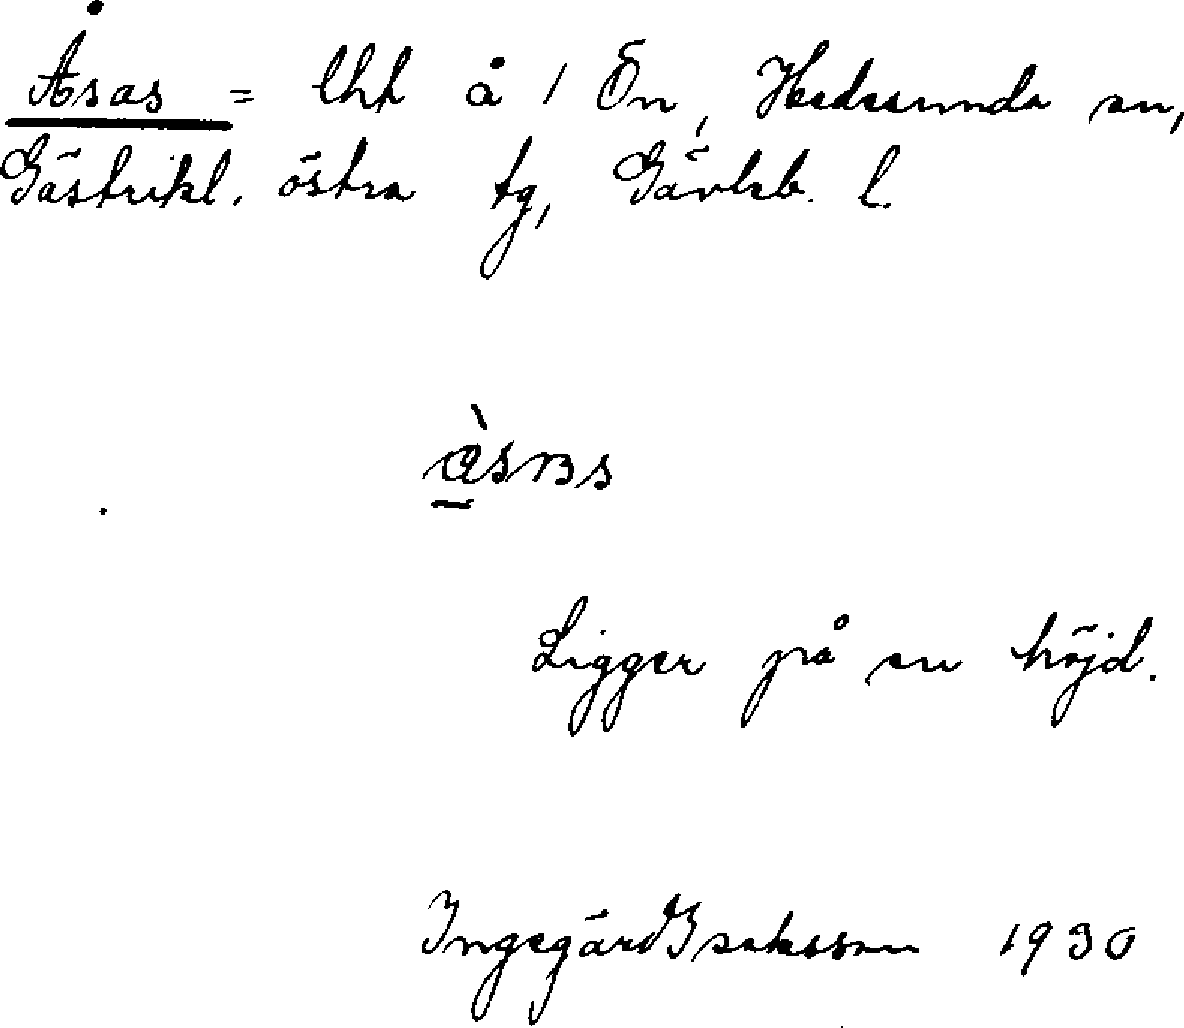 Åsas = lht å 1 Ön, Hedesunda sn,
Gästrikl. östra tg, Gävleb. l.
Ligger på en höjd.
Ingegärd Isaksson 1930